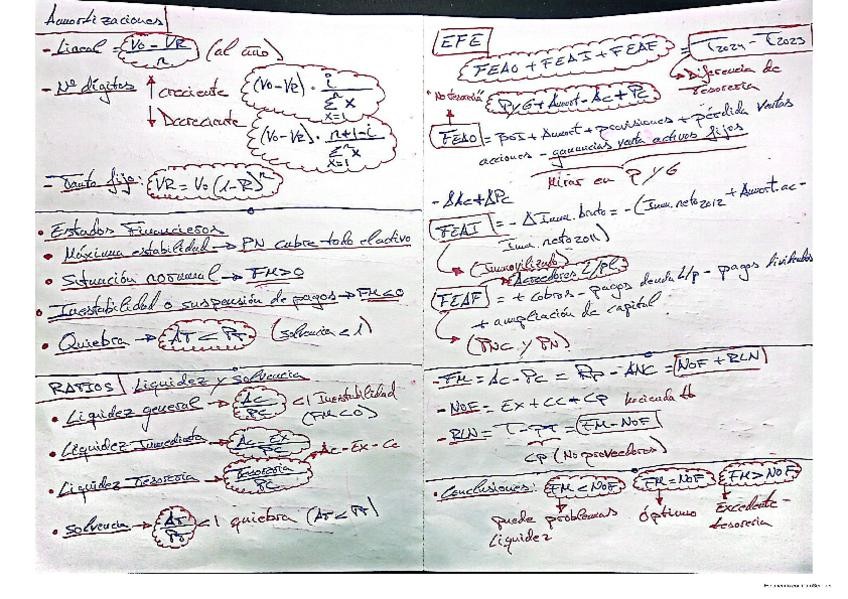 Amortizaciones
- Lineal = Vo - VR / n (al año)
- Nº dígitos ↑ creciente (Vo - VR) · i / Σ x
n
x=1
↓ Decreciente (Vo - VR) · n+1-i / Σ x
n
x=1
- Tanto fijo: VR = Vo (1-R)^n
• Estados Financieros
• Máxima estabilidad → PN cubre todo el activo
• Situación normal → FM>0
• Inestabilidad o suspensión de pagos → FM<0
• Quiebra → AT < PT (solvencia < 1)
RATIOS | Liquidez y solvencia
• Liquidez general → AC / PC < 1 Inestabilidad
(FM<0)
• Liquidez Inmediata → AC - EX / PC → AC - EX - CC
• Liquidez Tesorería → Tesorería / PC
• Solvencia → AT / PT < 1 quiebra (AT < PT)
EFE
FEAO + FEAI + FEAF = T2024 - T2023
→ Diferencia de
tesorería
"No tesorería" PyG + Amort - AC + PC
FEAO = BDI + Amort + provisiones + pérdida ventas
acciones - ganancias venta activos fijos
Mirar en P y G
- ΔAC + ΔPC
FEAI = - Δ Inm. bruto = - (Inm. neto 2012 + Amort. ac -
Inm. neto 2011)
(Inmovilizado)
Acreedores L/p C
FEAF = + cobros - pagos deuda L/p - pagos dividendos
+ ampliación de capital
(PNC y PN)
- FM = AC - PC = Rp - ANC = NOF + RLN
- NOF = EX + CC + CP
- RLN = T - PT = FM - NOF
CP (No proveedores)
• Conclusiones: FM < NOF FM = NOF FM > NOF
puede problemas óptimo Excedente
liquidez tesorería